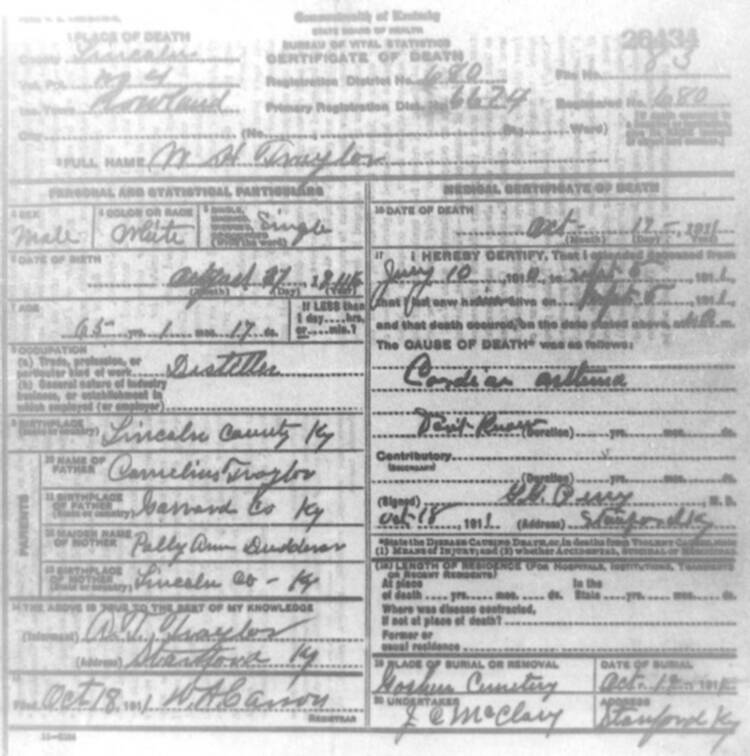 Commonwealth of Kentucky
STATE BOARD OF HEALTH
BUREAU OF VITAL STATISTICS
CERTIFICATE OF DEATH
26434
1 PLACE OF DEATH
County Lincoln
Vot. Pct. No 4
Inc. Town Rowland
Registration District No. 680
File No. 83
Primary Registration Dist. No. 6674
Registered No. 680
City (No. St.; Ward)
2 FULL NAME W H Traylor
PERSONAL AND STATISTICAL PARTICULARS
3 SEX Male
4 COLOR OR RACE White
5 SINGLE, Single
(Write the word)
6 DATE OF BIRTH
(Month) (Day) (Year)
7 AGE
65 yrs. 1 mos. 17 ds.
If LESS than
1 day....hrs.
or....min.?
8 OCCUPATION
(a) Trade, profession, or
particular kind of work Distiller
(b) General nature of industry
business, or establishment in
which employed (or employer)
9 BIRTHPLACE
(State or country) Lincoln County Ky
PARENTS
10 NAME OF
FATHER Cornelius Traylor
11 BIRTHPLACE
OF FATHER
(State or country) Garrard Co Ky
12 MAIDEN NAME
OF MOTHER Polly Ann Dudderar
13 BIRTHPLACE
OF MOTHER
(State or country) Lincoln Co - Ky
14 THE ABOVE IS TRUE TO THE BEST OF MY KNOWLEDGE
(Informant) Traylor
(Address) Stanford Ky
15
Filed Oct 18, 1911 W A Carson
REGISTRAR
11-6184
MEDICAL CERTIFICATE OF DEATH
16 DATE OF DEATH
Oct - 17 - , 1911
(Month) (Day) (Year)
17 I HEREBY CERTIFY, That I attended deceased from
July 10, 191 , to Sept 5, 1911,
that I last saw alive on Sept 5, 1911,
and that death occured, on the date stated above, at m.
The CAUSE OF DEATH* was as follows:
Cardiac asthma
Don't Know (Duration) yrs. mos. ds.
Contributory
(SECONDARY)
(Duration) yrs. mos. ds.
(Signed) Perry, M. D.
Oct 18, 1911 (Address) Stanford Ky
*State the DISEASE CAUSING DEATH, or, in deaths from VIOLENT CAUSES, state
(1) MEANS OF INJURY; and (2) whether ACCIDENTAL, SUICIDAL or HOMICIDAL
(18) LENGTH OF RESIDENCE (FOR HOSPITALS, INSTITUTIONS, TRANSIENTS
OR RECENT RESIDENTS)
At place In the
of death .... yrs. .... mos. .... ds. State .... yrs. .... mos. .... ds.
Where was disease contracted,
if not at place of death?
Former or
usual residence
19 PLACE OF BURIAL OR REMOVAL
Goshen Cemetery
DATE OF BURIAL
20 UNDERTAKER
J C McClary
ADDRESS
Stanford Ky